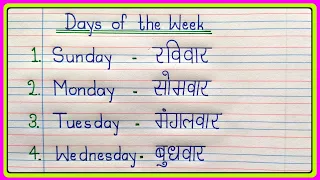 Days of the Week
1. Sunday - रविवार
2. Monday - सोमवार
3. Tuesday - मंगलवार
4. Wednesday - बुधवार